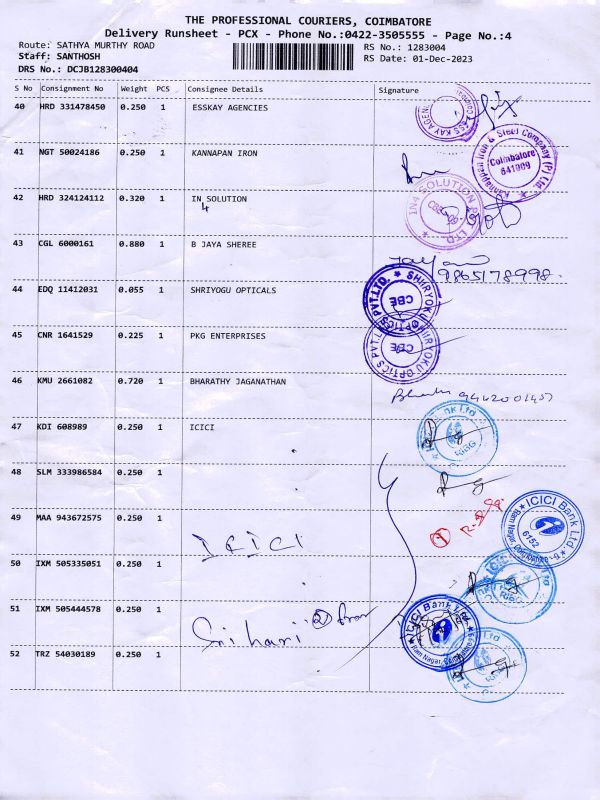 THE PROFESSIONAL COURIERS, COIMBATORE
Delivery Runsheet - PCX - Phone No.:0422-3505555 - Page No.:4
Route: SATHYA MURTHY ROAD RS No.: 1283004
Staff: SANTHOSH RS Date: 01-Dec-2023
DRS No.: DCJB128300404
S No Consignment No Weight PCS Consignee Details Signature
40 HRD 331478450 0.250 1 ESSKAY AGENCIES
41 NGT 50024186 0.250 1 KANNAPAN IRON
Kannappan Iron & Steel Company (P) Ltd.
Coimbatore
641009
42 HRD 324124112 0.320 1 IN SOLUTION
4
IN4 SOLUTION
43 CGL 6000161 0.880 1 B JAYA SHEREE
9865178998.
44 EDQ 11412031 0.055 1 SHRIYOGU OPTICALS
SHRIYOKU OPTICS PVT.LTD.
CBE
45 CNR 1641529 0.225 1 PKG ENTERPRISES
SHRIYOKU OPTICS PVT.LTD.
CBE
46 KMU 2661082 0.720 1 BHARATHY JAGANATHAN
47 KDI 608989 0.250 1 ICICI
48 SLM 333986584 0.250 1
49 MAA 943672575 0.250 1
ICICI
ICICI Bank Ltd
6152
50 IXM 505335051 0.250 1
51 IXM 505444578 0.250 1
Sri hari 2
ICICI Bank Ltd
52 TRZ 54030189 0.250 1